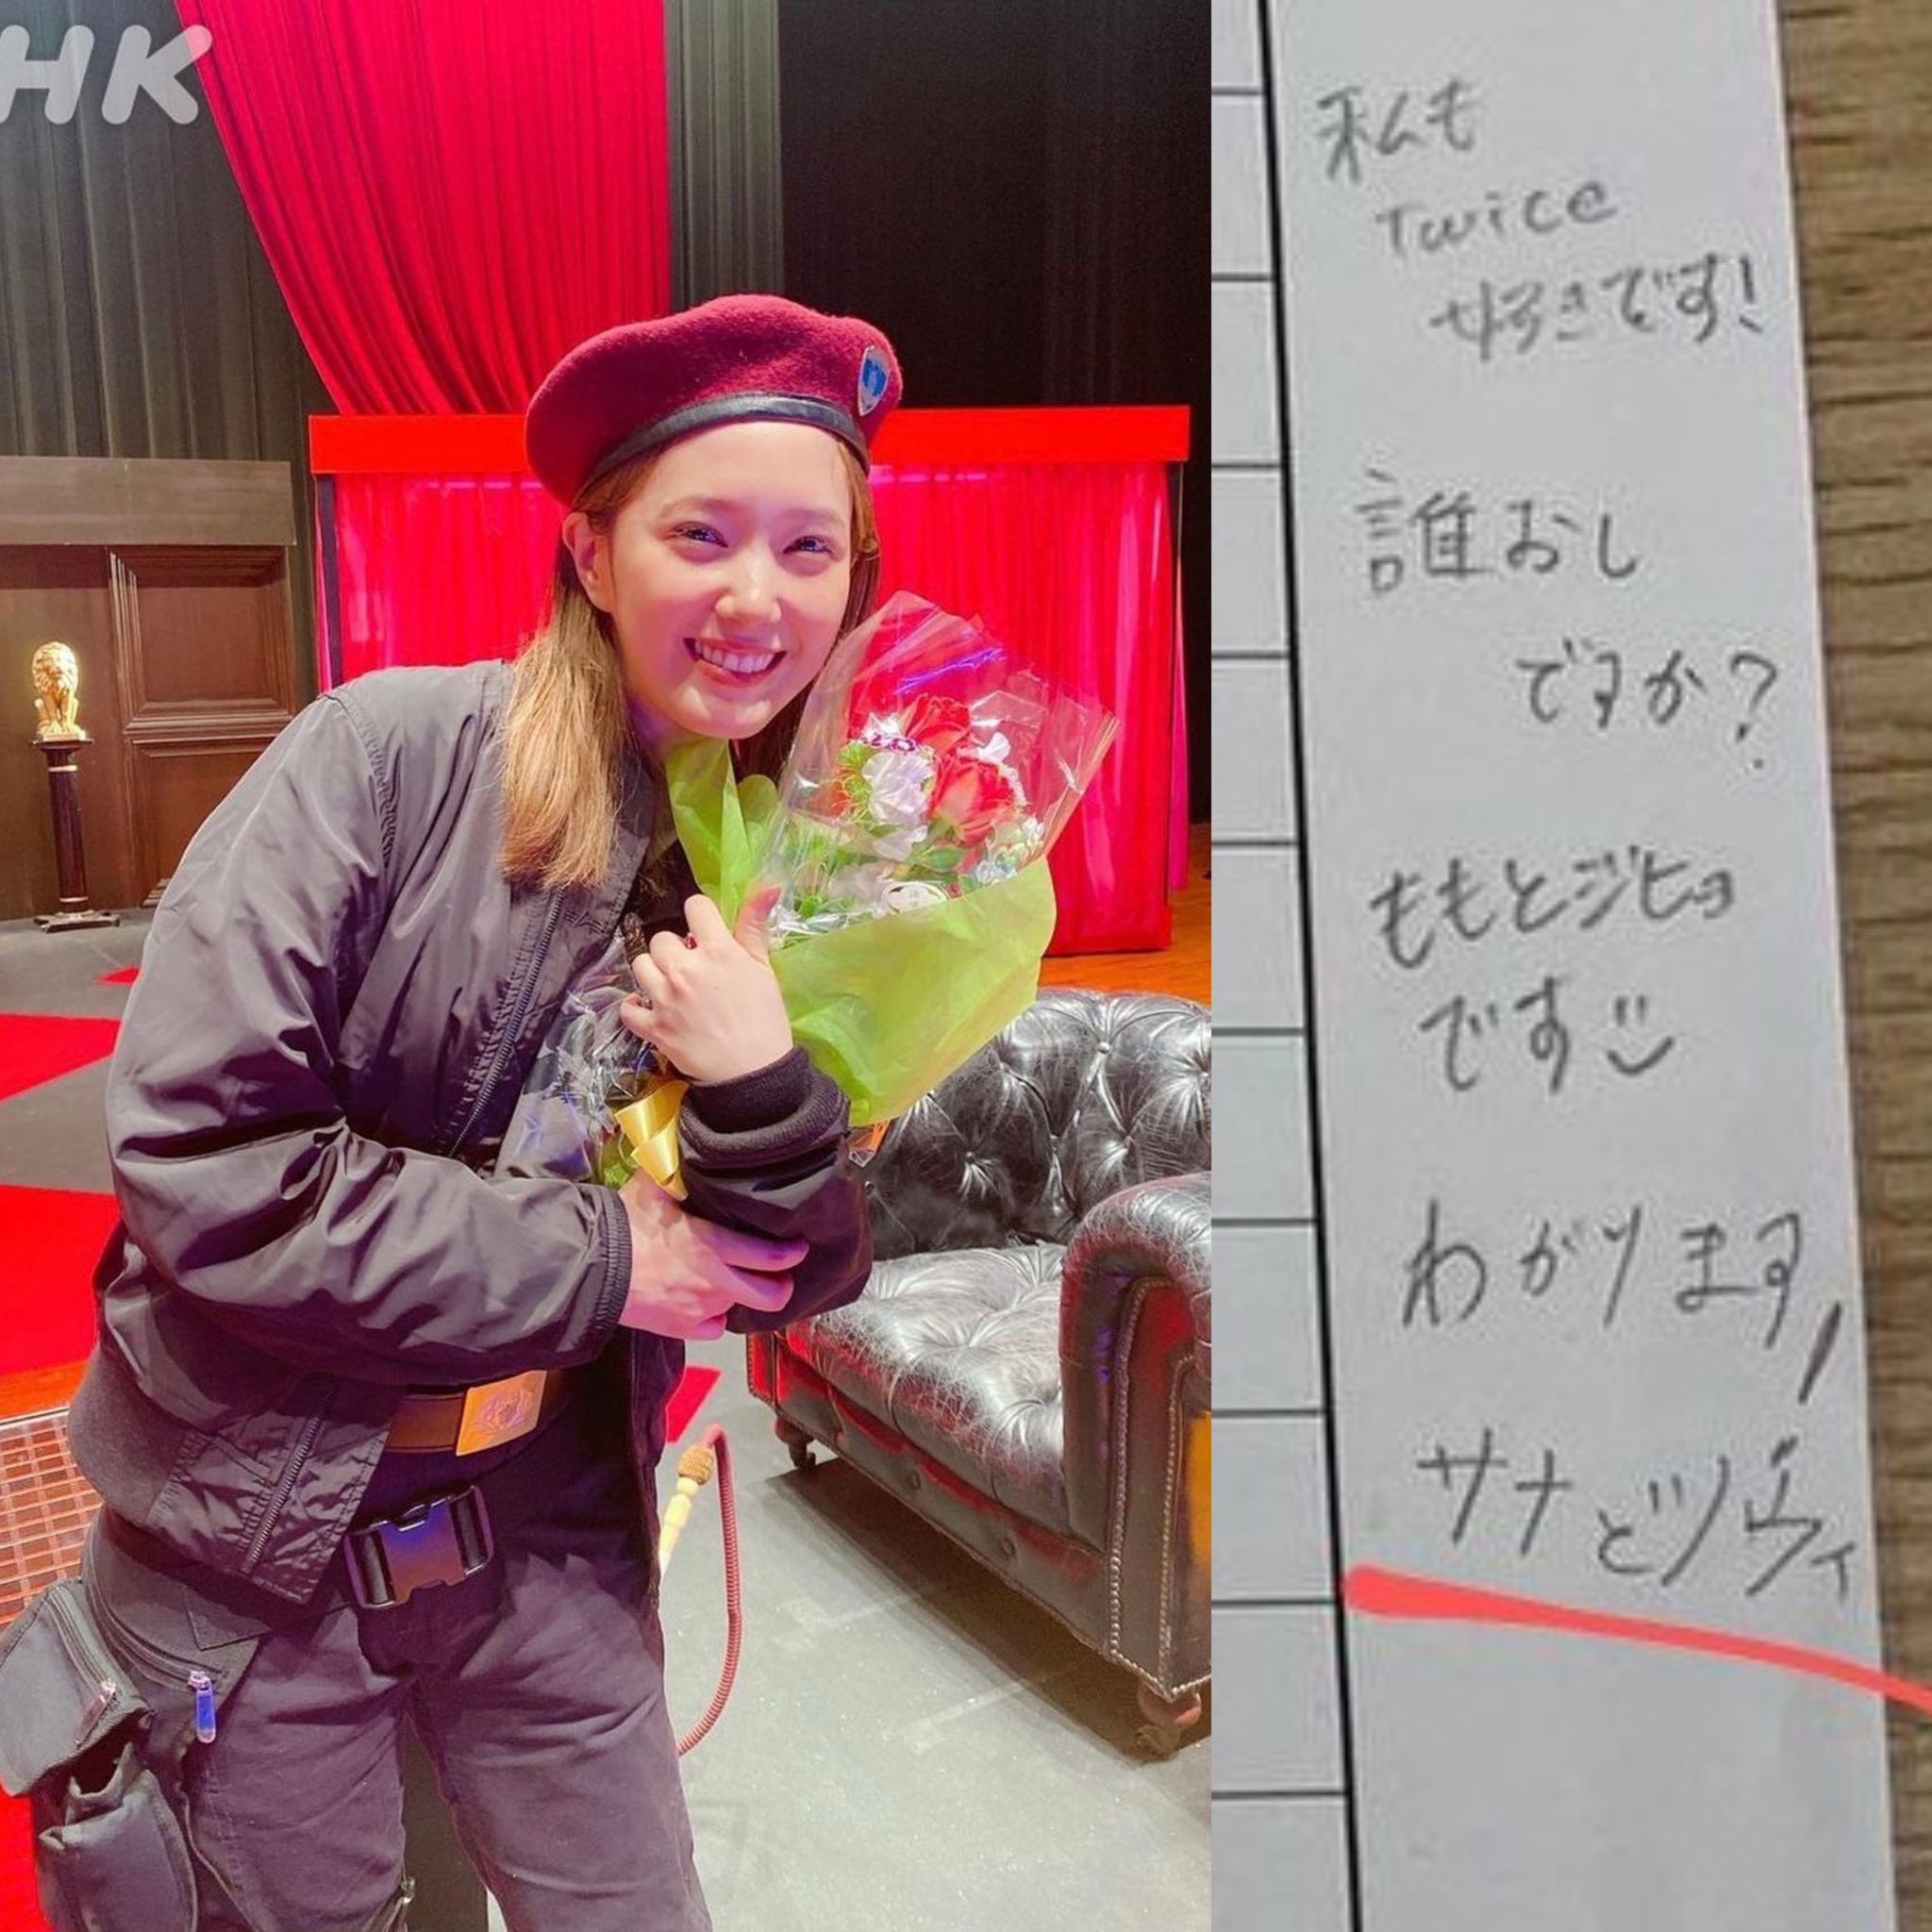 HK
私も
Twice
好きです!
誰おし
ですか?
ももとジヒョ
です
わかります!
サナ